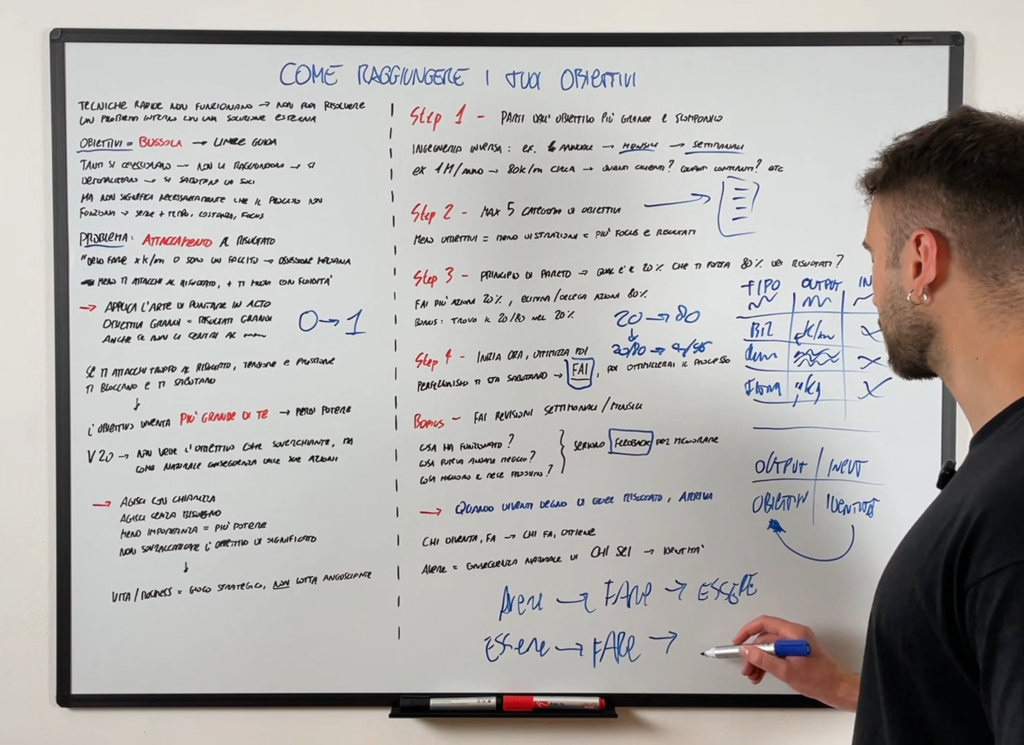 COME RAGGIUNGERE I TUOI OBIETTIVI
TECNICHE RAPIDE NON FUNZIONANO → NON PUOI RISOLVERE
UN PROBLEMA INTERNO CON UNA SOLUZIONE ESTERNA
OBIETTIVI = BUSSOLA → LINEE GUIDA
TANTI SI → NON LI RAGGIUNGONO → SI
→ SI SABOTANO DA SOLI
MA NON SIGNIFICA NECESSARIAMENTE CHE IL PROCESSO NON
FUNZIONA → SERVE + TEMPO, COSTANZA, FOCUS
PROBLEMA: ATTACCAMENTO AL RISULTATO
"DEVO FARE xk/m O SONO UN FALLITO → OSSESSIONE
MENO TI ATTACCHI AL RISULTATO, + TI MUOVI CON FLUIDITÀ
→ APPLICA L'ARTE DI PUNTARE IN ALTO
OBIETTIVI GRANDI = RISULTATI GRANDI
ANCHE SE NON LI CENTRI AL
0 → 1
SE TI ATTACCHI TROPPO AL RISULTATO, TENSIONE E PRESSIONE
TI BLOCCANO E TI SABOTANO
↓
L'OBIETTIVO DIVENTA PIÙ GRANDE DI TE → PERDI POTERE
V 20 → NON VEDE L'OBIETTIVO COME SOVERCHIANTE, MA
COME NATURALE CONSEGUENZA DELLE SUE AZIONI
→ AGISCI CON CHIAREZZA
AGISCI SENZA BISOGNO
MENO IMPORTANZA = PIÙ POTERE
NON SOVRACCARICARE L'OBIETTIVO DI SIGNIFICATO
↓
VITA/BUSINESS = GIOCO STRATEGICO, NON LOTTA ANGOSCIANTE
Step 1 - PARTI DALL'OBIETTIVO PIÙ GRANDE E SCOMPONILO
INGEGNERIA INVERSA: ES. ANNUALE → MENSILI → SETTIMANALI
ex 1M/ANNO → 80k/m CIRCA → QUANTI CLIENTI? QUANTI CONTRATTI? ETC
Step 2 - MAX 5 CATEGORIE DI OBIETTIVI
MENO OBIETTIVI = MENO DISTRAZIONI = PIÙ FOCUS E RISULTATI
Step 3 - PRINCIPIO DI PARETO → QUAL È IL 20% CHE TI PORTA 80% DEI RISULTATI?
FAI PIÙ AZIONI 20%, ELIMINA/DELEGA AZIONI 80%
BONUS: TROVA IL 20/80 NEL 20%
20 → 80
↓
20/80 →
Step 4 - INIZIA ORA, OTTIMIZZA POI
PERFEZIONISMO TI STA SABOTANDO → FAI, POI OTTIMIZZERAI IL PROCESSO
Bonus - FAI REVISIONI SETTIMANALI/MENSILI
COSA HA FUNZIONATO?
COSA POTEVA ANDARE MEGLIO?
COSA MIGLIORO IL MESE PROSSIMO?
SERVONO FEEDBACK PER MIGLIORARE
→ QUANDO DIVENTI DEGNO DI QUEL RISULTATO, ARRIVA
CHI DIVENTA, FA → CHI FA, OTTIENE
AVERE = CONSEGUENZA NATURALE DI CHI SEI → IDENTITÀ
AVERE → FARE → ESSERE
ESSERE → FARE →
TIPO OUTPUT IN
BIZ k/m X
X
kg X
OUTPUT / INPUT
OBIETTIVI IDENTITÀ